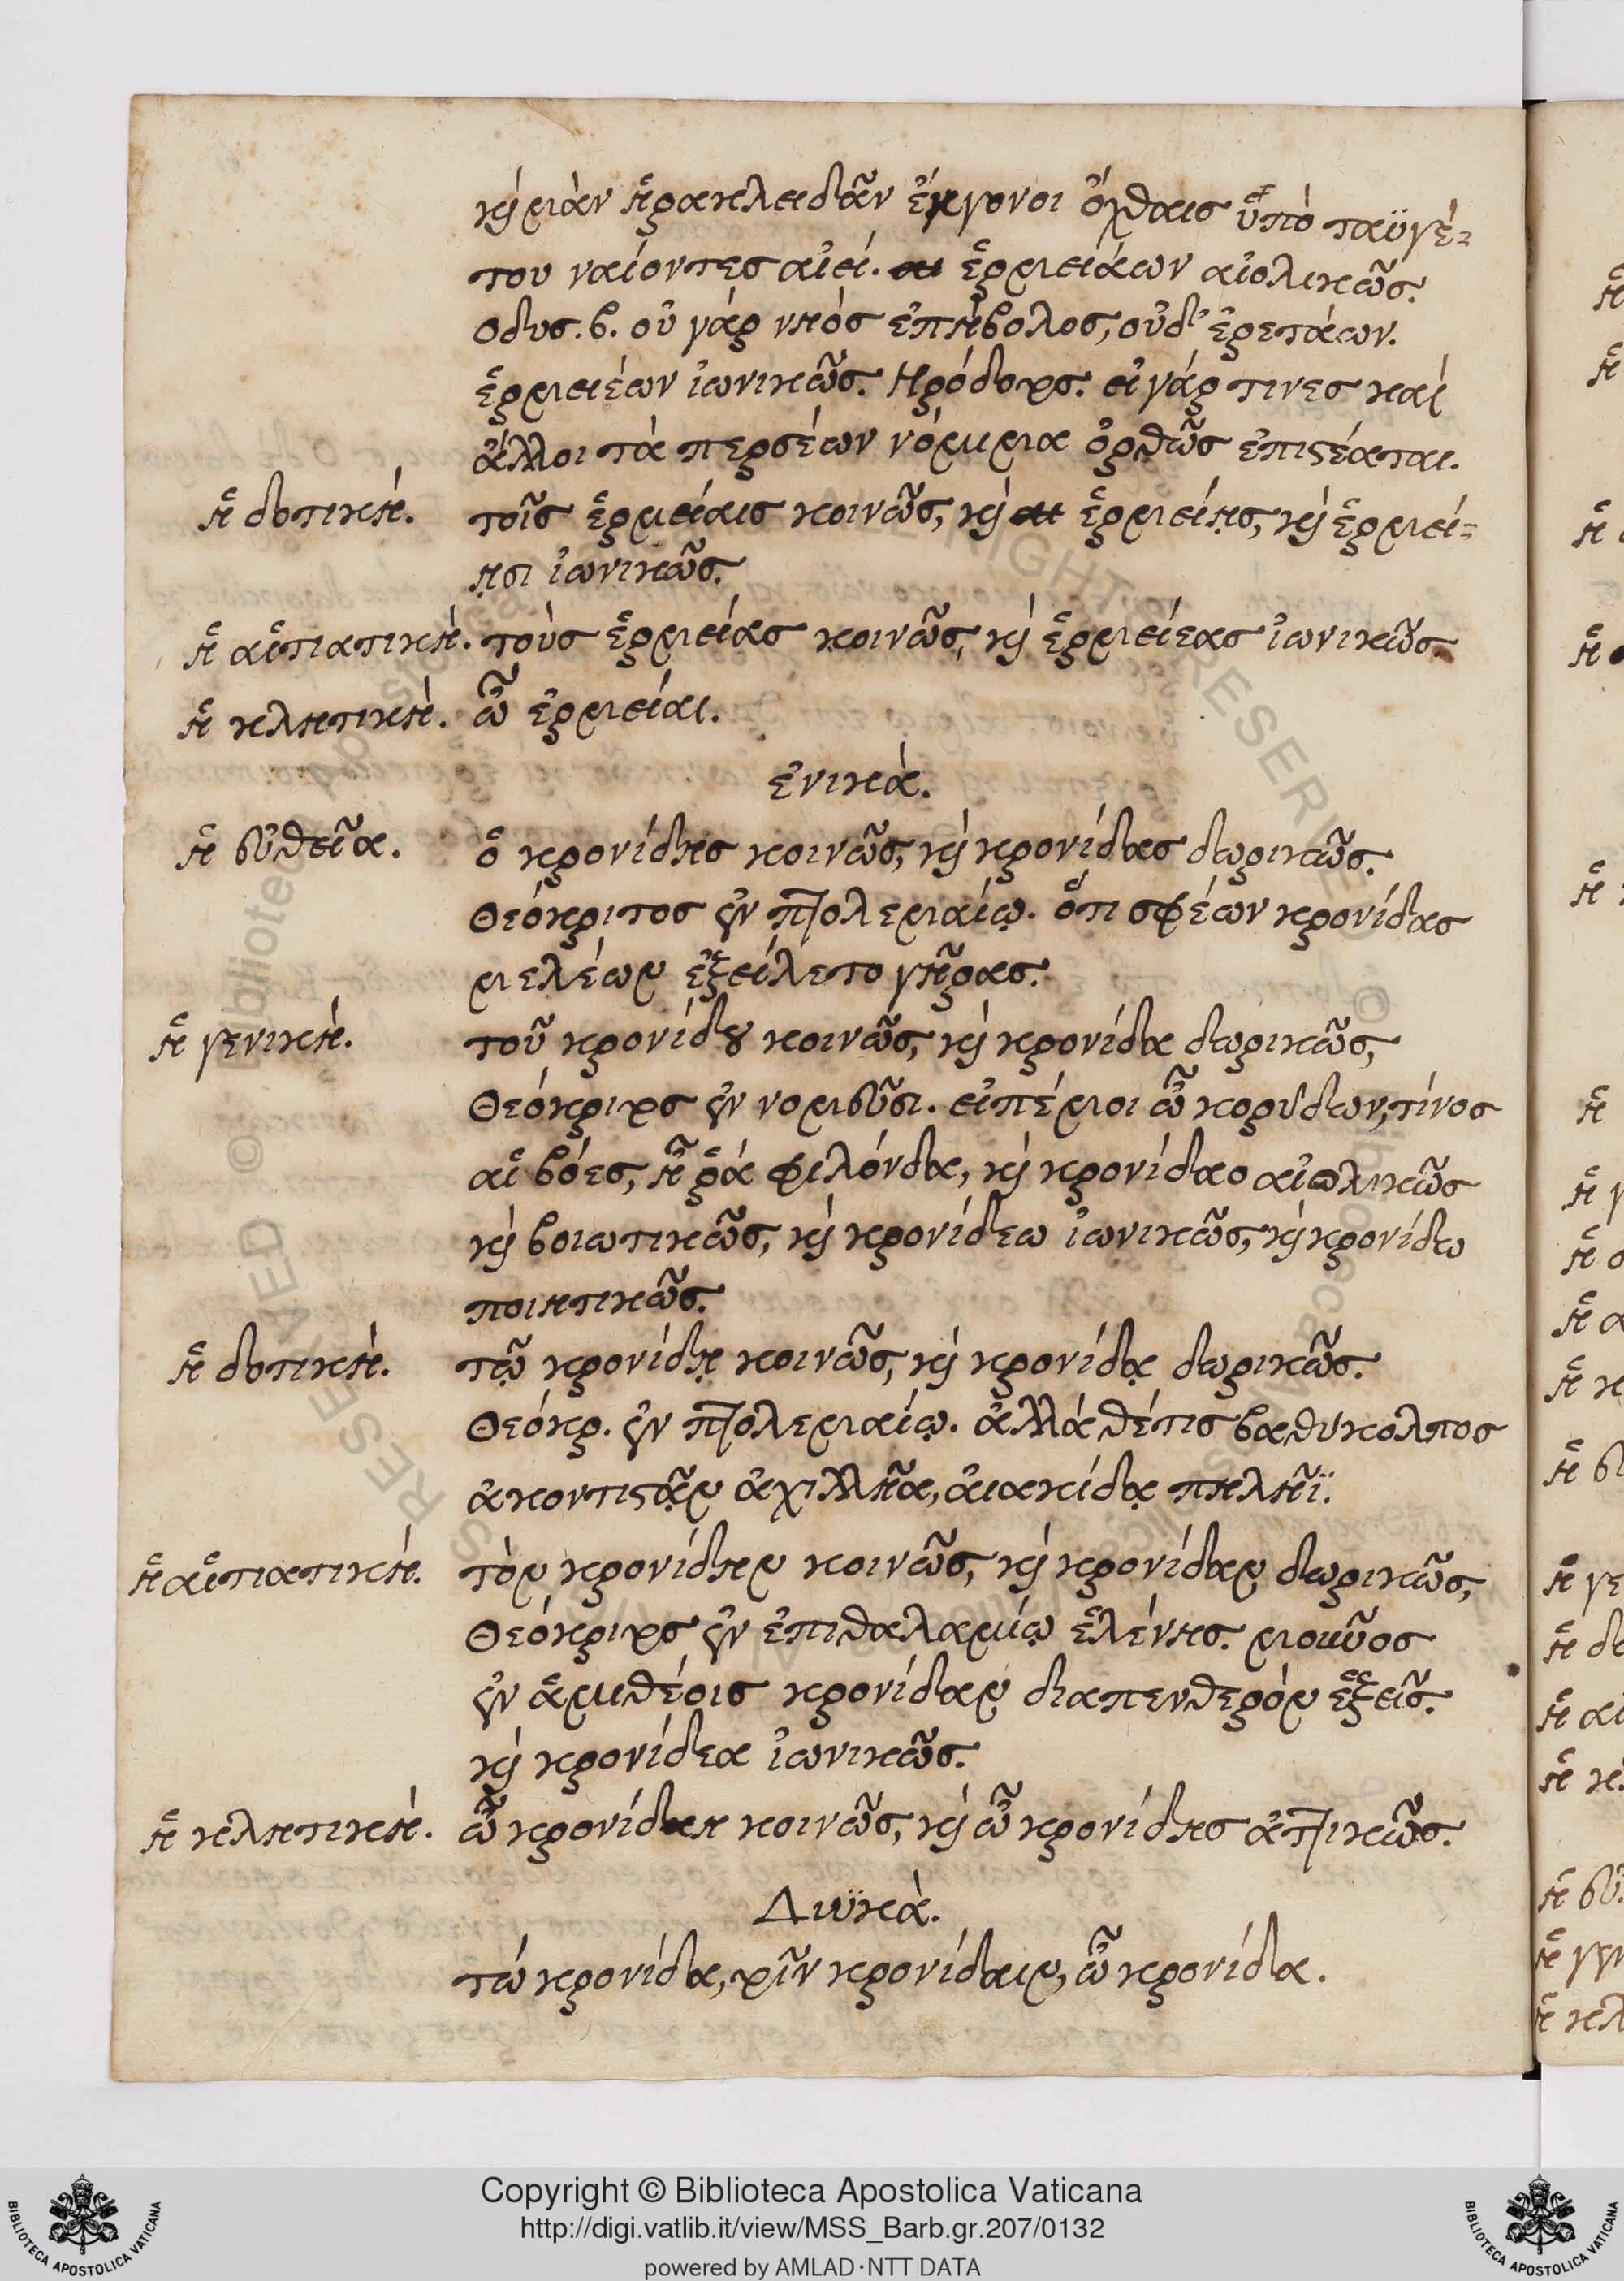 καὶ μὰν ἡρακλειδᾶν ἔκγονοι ὄχθαις ὑπὸ ταϋγέ-
του ναίοντες αἰεί. ἑρμειάων αἰολικῶς.
Οδυς. β. οὐ γάρ νηός ἐπήβολος, οὐδ' ἐρετάων.
ἑρμειέων ἰωνικῶς. Ηρόδοτος. εἰ γάρ τινες καί
ἄλλοι τὰ περσέων νόμιμα ὀρθῶς ἐπιστέαται.
ἡ δοτική. τοῖς ἑρμείαις κοινῶς, καὶ ἑρμείῃς, καὶ ἑρμεί-
ῃσι ἰωνικῶς.
ἡ αἱτιατική. τοὺς ἑρμείας κοινῶς, καὶ ἑρμείεας ἰωνικῶς.
ἡ κλητική. ὦ ἑρμείαι.
ἑνικά.
ἡ εὐθεῖα. ὁ κρονίδης κοινῶς, καὶ κρονίδας δωρικῶς.
Θεόκριτος ἐν πτολεμαίῳ. ὅτι σφέων κρονίδας
μελέων ἐξείλετο γῆρας.
ἡ γενική. τοῦ κρονίδου κοινῶς, καὶ κρονίδα δωρικῶς,
Θεόκριτος ἐν νομεῦσι. εἰπέ μοι ὦ κορύδων, τίνος
αἱ βόες, ἦ ῥά φιλόνδα, καὶ κρονίδαο αἰολικῶς
καὶ βοιωτικῶς, καὶ κρονίδεω ἰωνικῶς, καὶ κρονίδω
ποιητικῶς.
ἡ δοτική. τῷ κρονίδῃ κοινῶς, καὶ κρονίδᾳ δωρικῶς.
Θεόκρ. ἐν πτολεμαίῳ. ἀλλά θέτις βαθυκόλπος
ἀκοντιστᾷν ἀχιλλῆα, ἀιακίδᾳ πηλῆϊ.
ἡ αἱτιατική. τὸν κρονίδην κοινῶς, καὶ κρονίδαν δωρικῶς,
Θεόκριτος ἐν ἐπιθαλαμίῳ ἑλένης. μοῦνος
ἐν ἁμιθέοις κρονίδαν δία πενθερόν ἑξεῖς.
καὶ κρονίδεα ἰωνικῶς.
ἡ κλητική. ὦ κρονίδη κοινῶς, καὶ ὦ κρονίδης ἀττικῶς.
Δυϊκὰ.
τώ κρονίδα, τοῖν κρονίδαιν, ὦ κρονίδα.
Copyright © Biblioteca Apostolica Vaticana
http://digi.vatlib.it/view/MSS_Barb.gr.207/0132
powered by AMLAD·NTT DATA
BIBLIOTECA APOSTOLICA VATICANA
BIBLIOTECA APOSTOLICA VATICANA